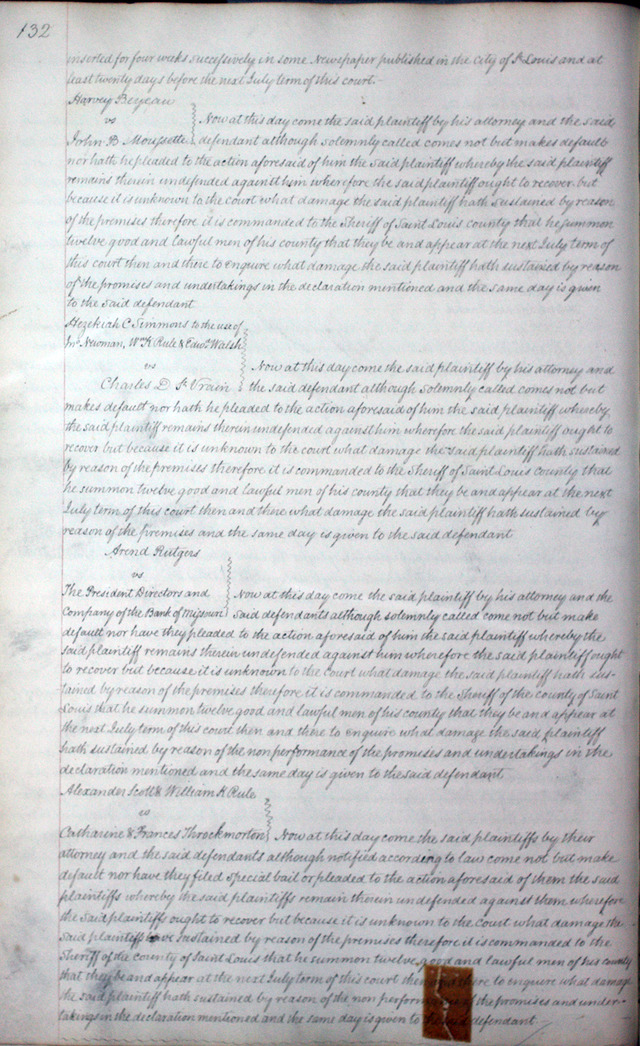 132
inserted for four weeks successively in some Newspaper published in the City of St Louis and at
least twenty days before the next July term of this court -
Harvey
vs Now at this day come the said plaintiff by his attorney and the said
John B defendant although solemnly called comes not but makes default
nor hath he pleaded to the action aforesaid of him the said plaintiff whereby the said plaintiff
remains therein undefended against him wherefore the said plaintiff ought to recover but
because it is unknown to the court what damage the said plaintiff hath sustained by reason
of the premises therefore it is commanded to the Sheriff of Saint Louis county that he summon
twelve good and lawful men of his county that they be and appear at the next July term of
this court then and there to enquire what damage the said plaintiff hath sustained by reason
of the promises and undertakings in the declaration mentioned and the same day is given
to the said defendant
Hezekiah C Simmons to the use of
Jno Newman, Wm K Rule & Edwd Walsh
vs Now at this day come the said plaintiff by his attorney and
Charles D St Vrain the said defendant although solemnly called comes not but
makes default nor hath he pleaded to the action aforesaid of him the said plaintiff whereby
the said plaintiff remains therein undefended against him wherefore the said plaintiff ought to
recover but because it is unknown to the court what damage the said plaintiff hath sustained
by reason of the premises therefore it is commanded to the Sheriff of Saint Louis county that
he summon twelve good and lawful men of his county that they be and appear at the next
July term of this court then and there what damage the said plaintiff hath sustained by
reason of the premises and the same day is given to the said defendant
Arend Rutgers
vs
The President Directors and Now at this day come the said plaintiff by his attorney and the
Company of the Bank of Missouri said defendants although solemnly called come not but make
default nor have they pleaded to the action aforesaid of him the said plaintiff whereby the
said plaintiff remains therein undefended against him wherefore the said plaintiff ought
to recover but because it is unknown to the court what damage the said plaintiff hath sus-
tained by reason of the premises therefore it is commanded to the Sheriff of the county of Saint
Louis that he summon twelve good and lawful men of his county that they be and appear at
the next July term of this court then and there to enquire what damage the said plaintiff
hath sustained by reason of the non performance of the promises and undertakings in the
declaration mentioned and the same day is given to the said defendant
Alexander Scott & William K Rule
vs
Catharine & Frances Throckmorton Now at this day come the said plaintiffs by their
attorney and the said defendants although notified according to law come not but make
default nor have they filed special bail or pleaded to the action aforesaid of them the said
plaintiffs whereby the said plaintiffs remain therein undefended against them wherefore
the said plaintiffs ought to recover but because it is unknown to the Court what damage the
said plaintiffs have sustained by reason of the premises therefore it is commanded to the
Sheriff of the county of Saint Louis that he summon twelve good and lawful men of his county
that they be and appear at the next July term of this court then and there to enquire what damage
the said plaintiff hath sustained by reason of the non performance of the promises and under-
takings in the declaration mentioned and the same day is given to the said defendant -